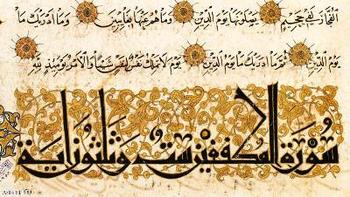 الفُجَّارَ لَفِي جَحِيمٍ يَصْلَوْنَهَا يَوْمَ الدِّينِ وَمَا هُمْ عَنْهَا بِغَائِبِينَ وَمَا أَدْرَيكَ مَا
يَوْمُ الدِّينِ ثُمَّ مَا أَدْرَيكَ مَا يَوْمُ الدِّينِ يَوْمَ لَا تَمْلِكُ نَفْسٌ لِنَفْسٍ شَيْئًا وَالْأَمْرُ يَوْمَئِذٍ لِلَّهِ
سورة المطففين ست وثلثون اية